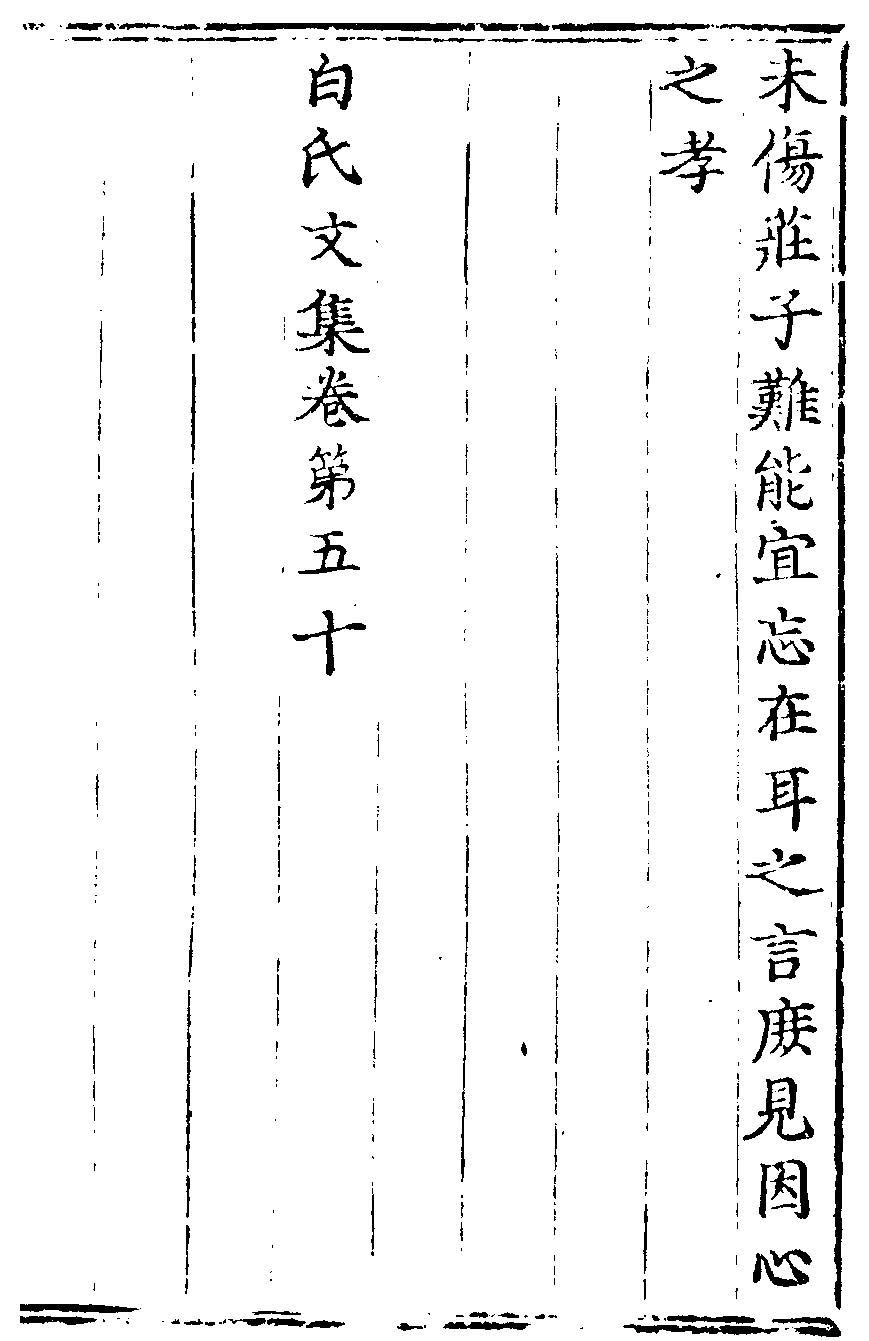 未傷莊子難能宜忘在耳之言庻見因心
之孝
白氏文集卷第五十